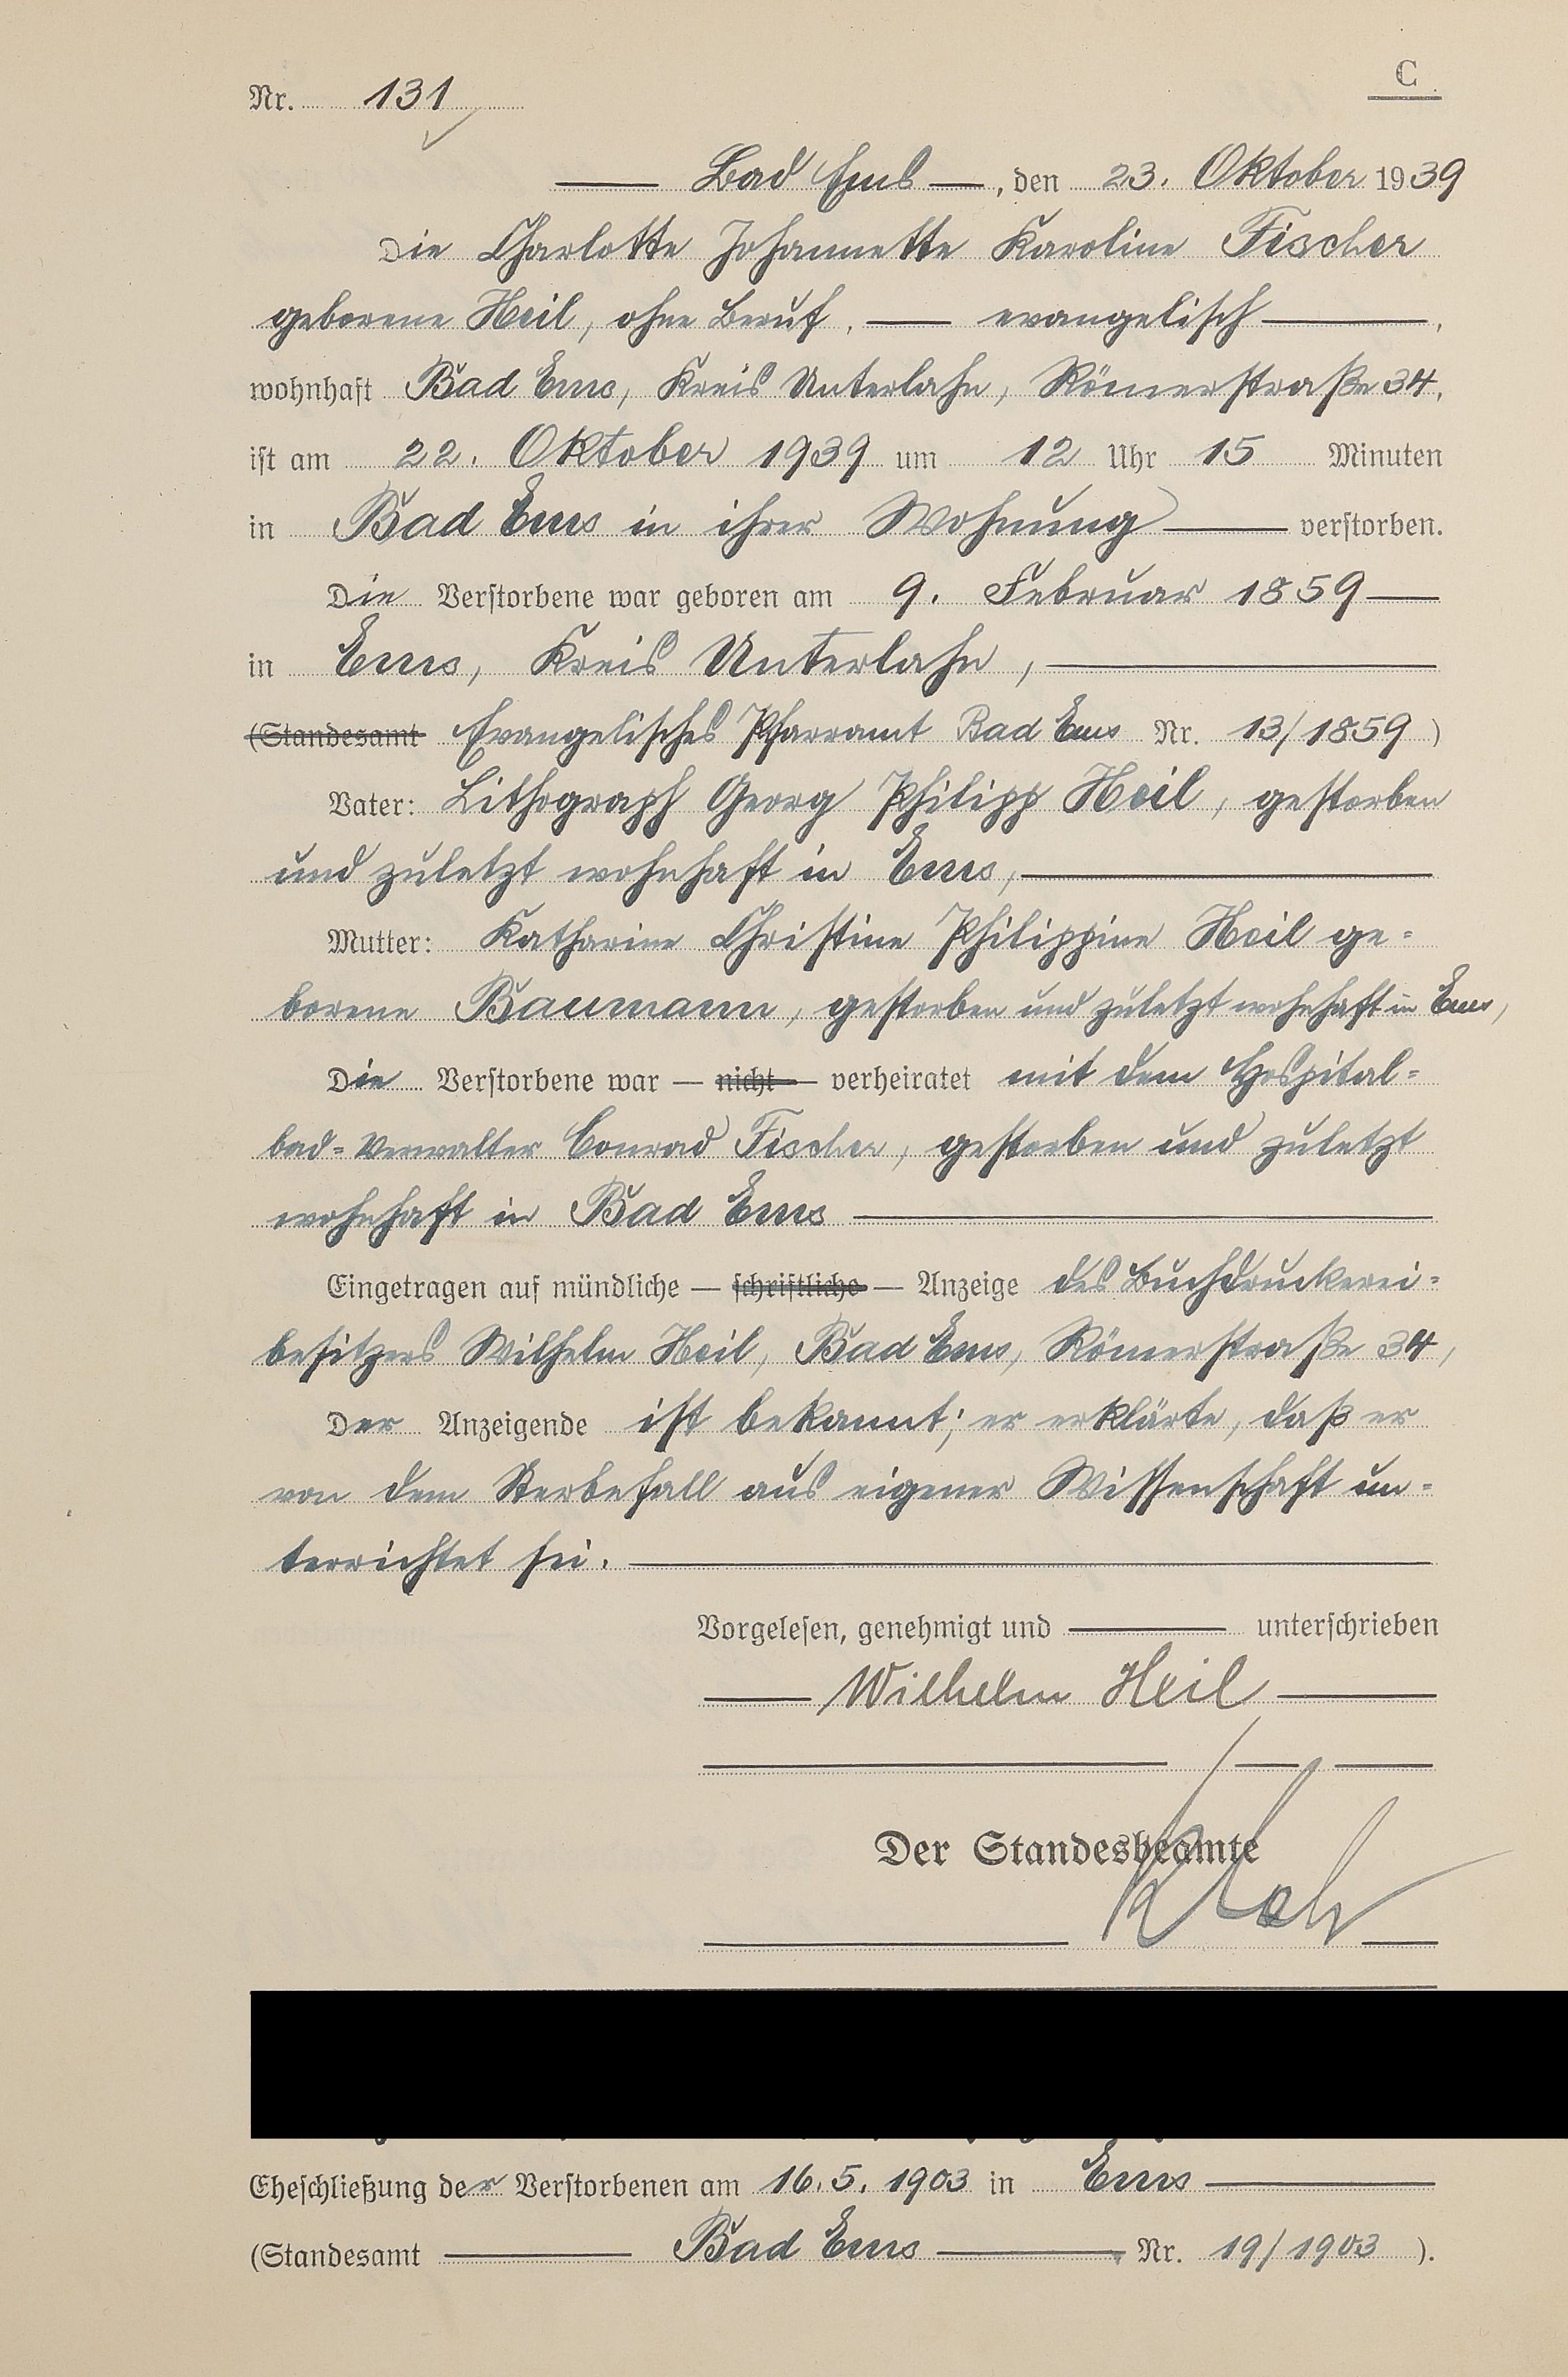 Nr. 131
C
Bad Ems, den 23. Oktober 1939
Die Charlotte Johannette Karoline Fischer
geborene Heil, ohne Beruf, — evangelisch —,
wohnhaft Bad Ems, Kreis Unterlahn, Römerstraße 34,
ist am 22. Oktober 1939 um 12 Uhr 15 Minuten
in Bad Ems in ihrer Wohnung — verstorben.
Die Verstorbene war geboren am 9. Februar 1859 —
in Ems, Kreis Unterlahn, —
(Standesamt Evangelisches Pfarramt Bad Ems Nr. 13/1859)
Vater: Lithograph Georg Philipp Heil, gestorben
und zuletzt wohnhaft in Ems, —
Mutter: Katharine Christine Philippine Heil ge=
borene Baumann, gestorben und zuletzt wohnhaft in Ems,
Die Verstorbene war — nicht — verheiratet mit dem Hospital=
bad=Verwalter Conrad Fischer, gestorben und zuletzt
wohnhaft in Bad Ems —
Eingetragen auf mündliche — schriftliche — Anzeige des Buchdruckerei=
besitzers Wilhelm Heil, Bad Ems, Römerstraße 34,
Der Anzeigende ist bekannt; er erklärte, daß er
von dem Sterbefall aus eigener Wissenschaft un=
terrichtet sei. —
Vorgelesen, genehmigt und — unterschrieben
Wilhelm Heil
Der Standesbeamte
Eheschließung der Verstorbenen am 16.5.1903 in Ems —
(Standesamt — Bad Ems — Nr. 19/1903).